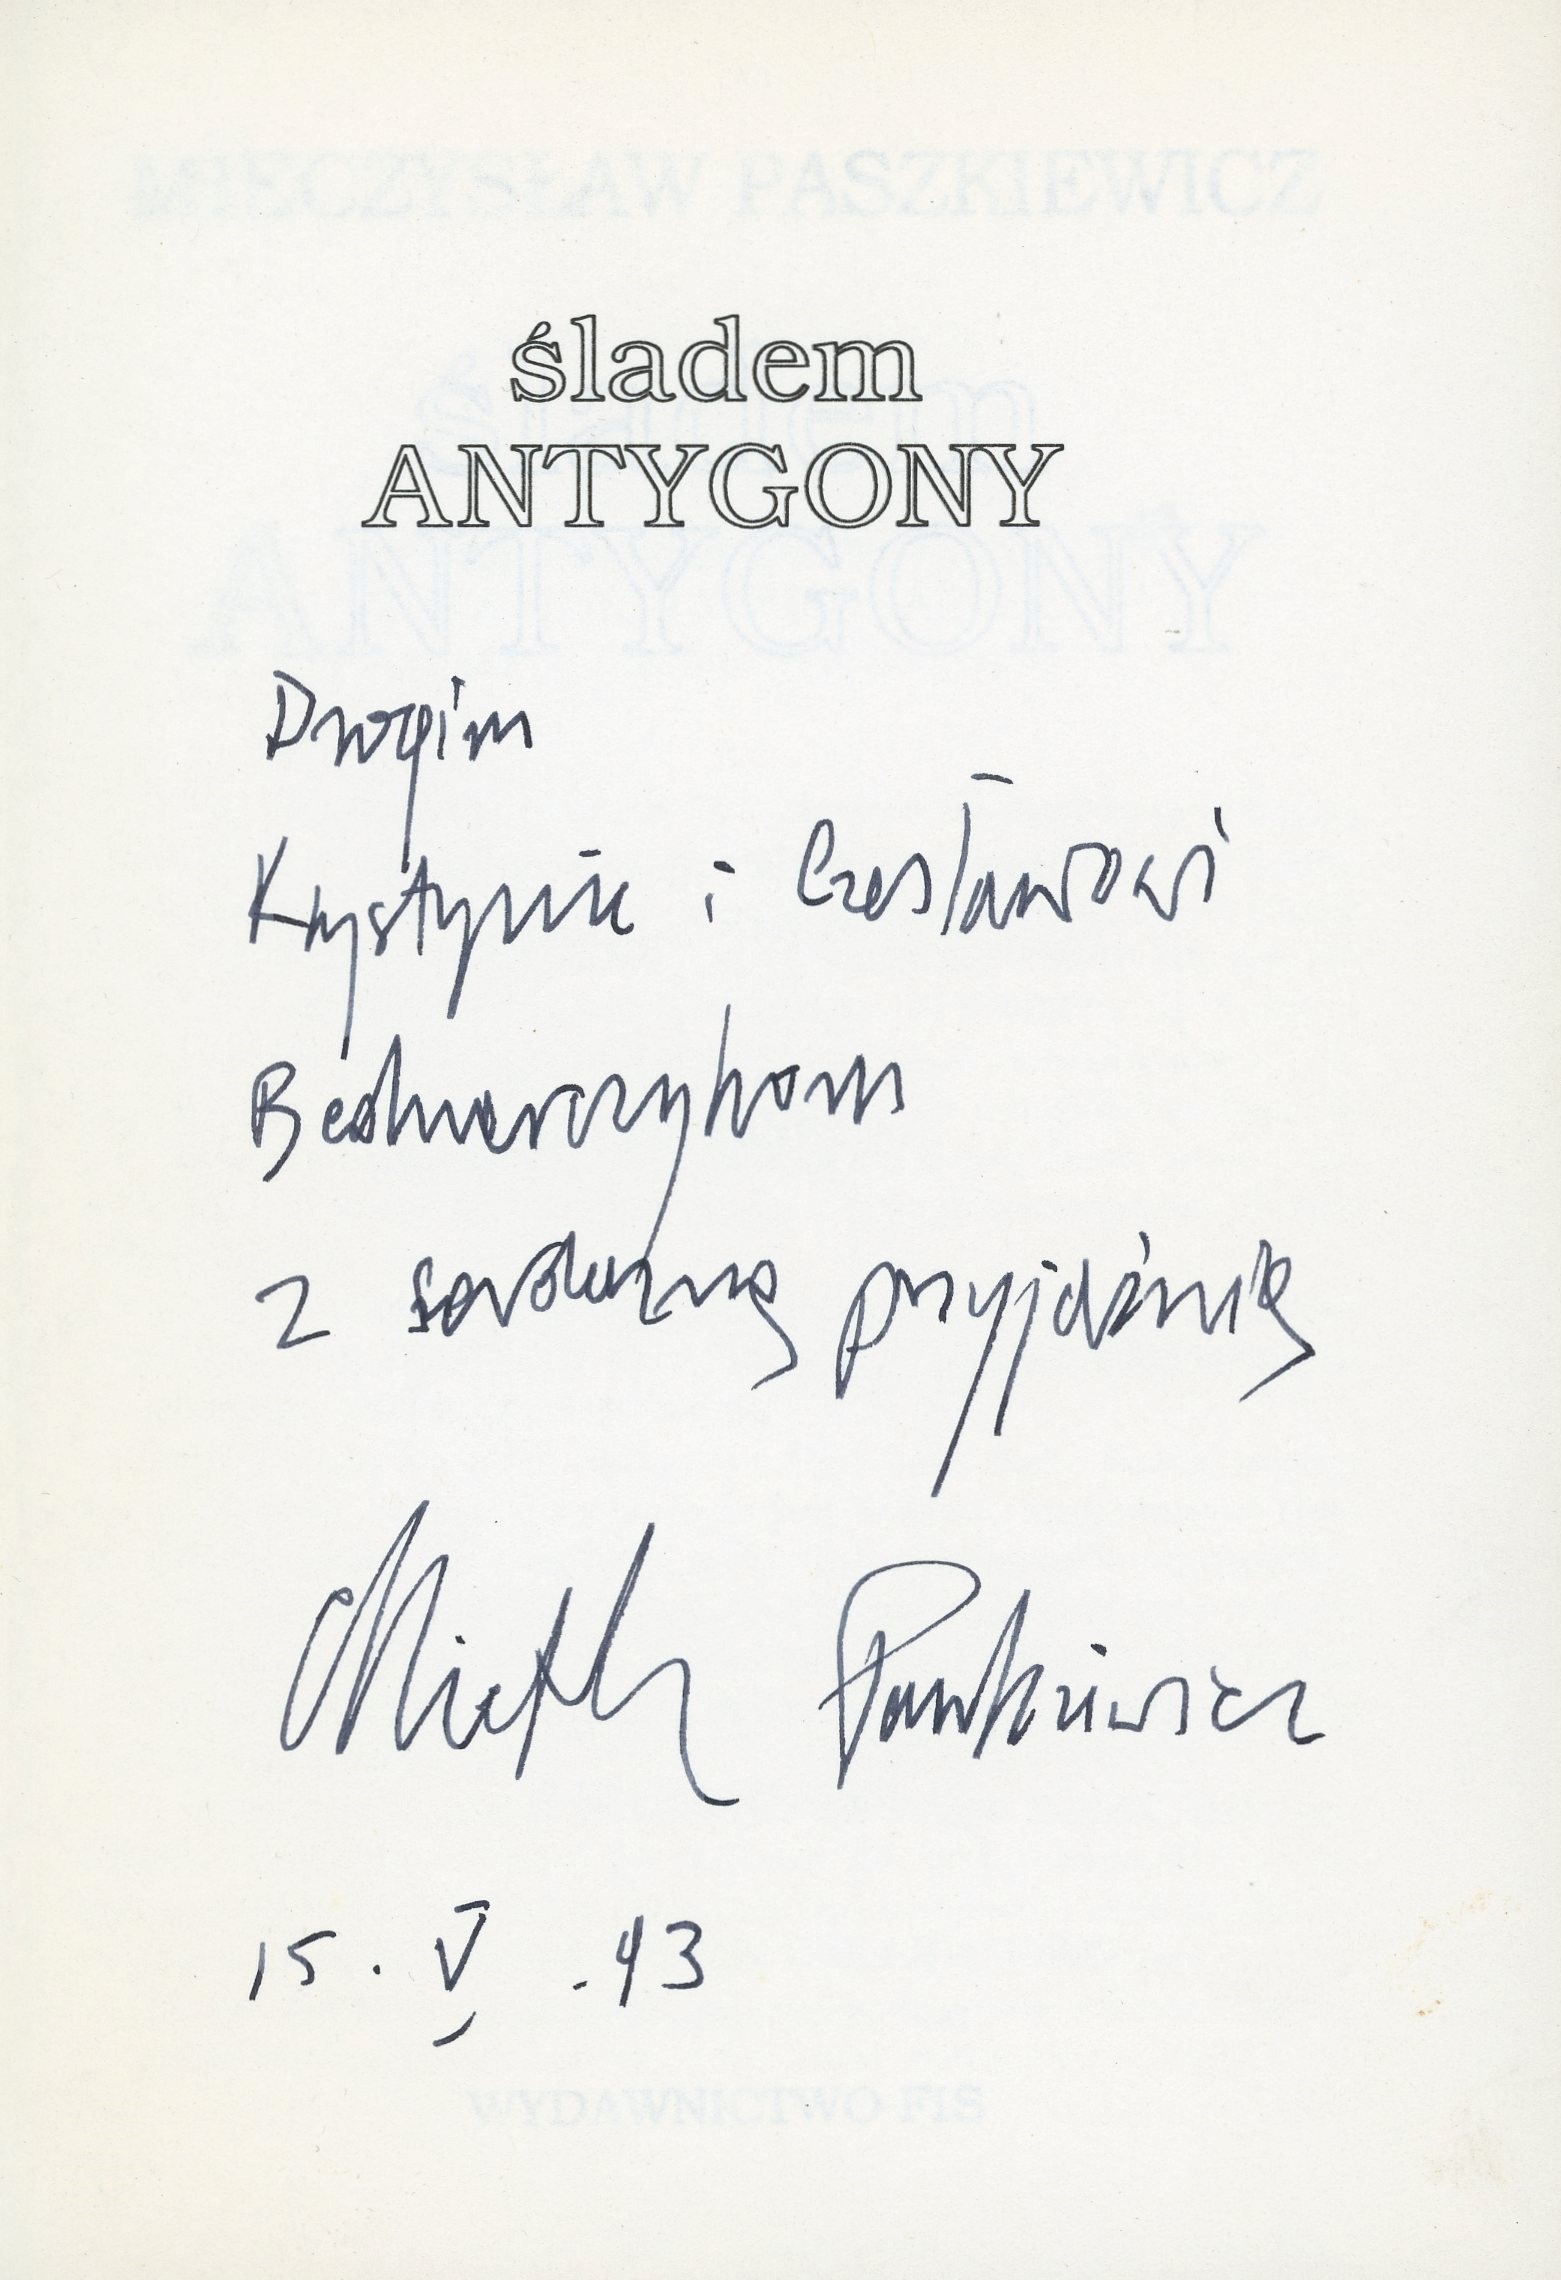 MIECZYSŁAW PASZKIEWICZ
śladem
ANTYGONY
śladem
ANTYGONY
Drogim
Krystynie i Czesławowi
Bednarczykom
z serdeczną przyjaźnią
Mietek Paszkiewicz
15. V. 93
WYDAWNICTWO FIS